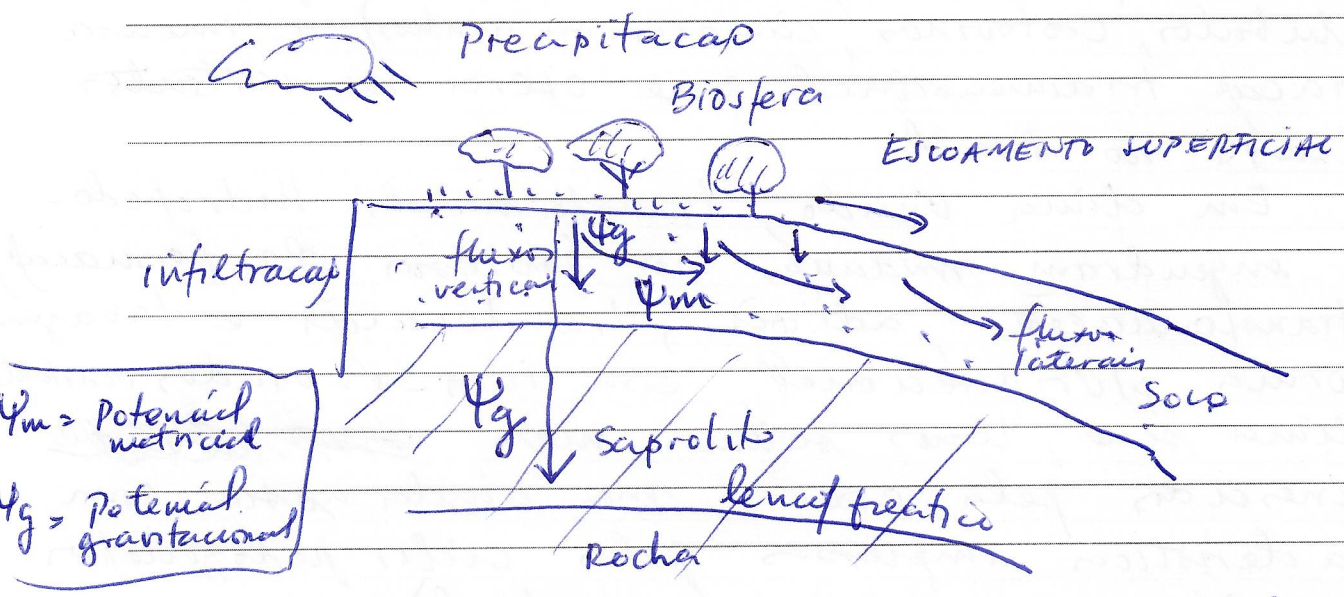 Precipitacao
Biosfera
ESCOAMENTO SUPERFICIAL
infiltracao
fluxos
verticais
Ψg
Ψm
fluxos
laterais
Solo
Ψm = Potencial
matricial
Ψg
Saprolito
Ψg = Potencial
gravitacional
lencol freatico
Rocha